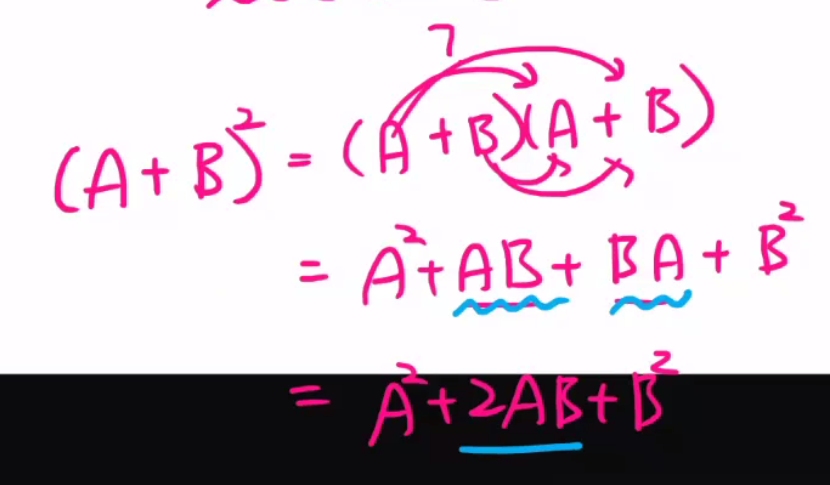 (A+B)² = (A+B)(A+B)
= A²+AB+BA+B²
= A²+2AB+B²